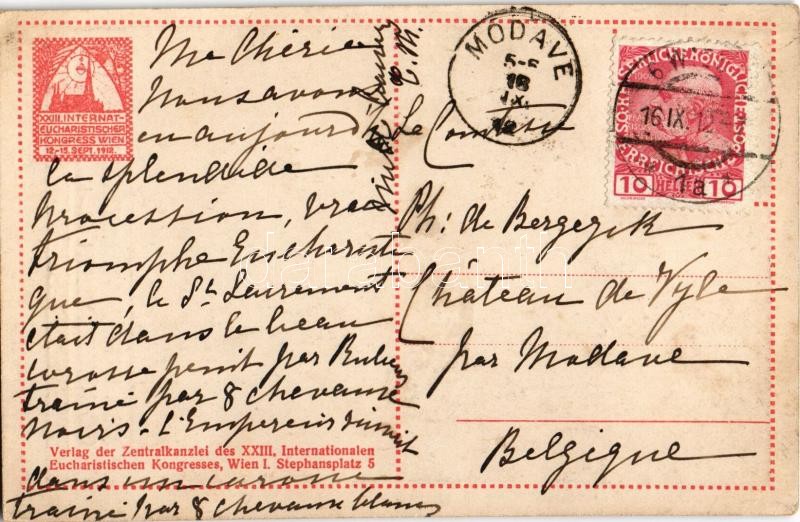 XXIII. INTERNAT-
EUCHARISTISCHER
KONGRESS WIEN
12.-15. SEPT. 1912.
Ma Chérie
Nous avons
eu aujourd'
la splendide
procession, vrai
triomphe Eucharisti
que, le St Sacrement
était dans le beau
carosse peint par Rubens
trainé par 8 chevaux
noirs - L'Empereur suivait
dans un carosse
trainé par 8 chevaux blancs
MODAVE
5-6
18
IX.
12
16 IX. 12
10 HELLER 10
La Comtesse
Ph: de Bergeyck
Château de Vyle
par Modave
Belgique
Verlag der Zentralkanzlei des XXIII. Internationalen
Eucharistischen Kongresses, Wien I. Stephansplatz 5
darabanth